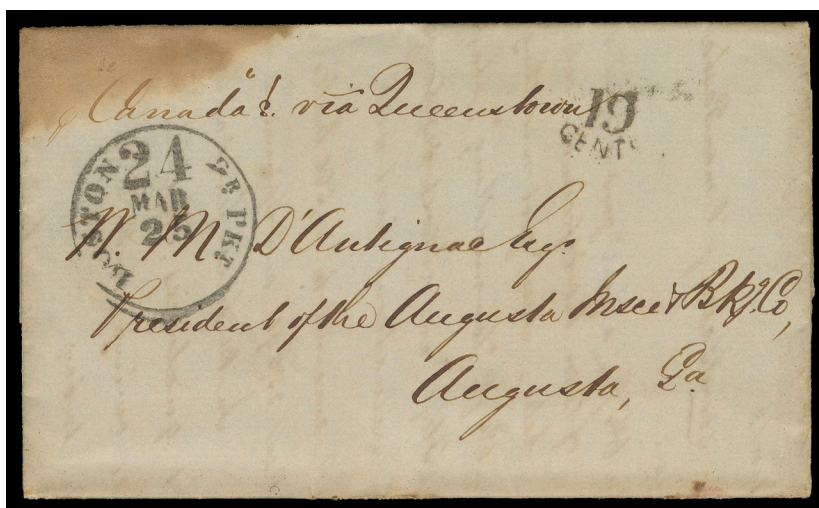 "Canada" &. via Queenstown
19
CENTS
BOSTON BR PKT
24
MAR
25
W. M D'Antignac Esqr
President of the Augusta Insce & Bkg. Co,
Augusta, Ga